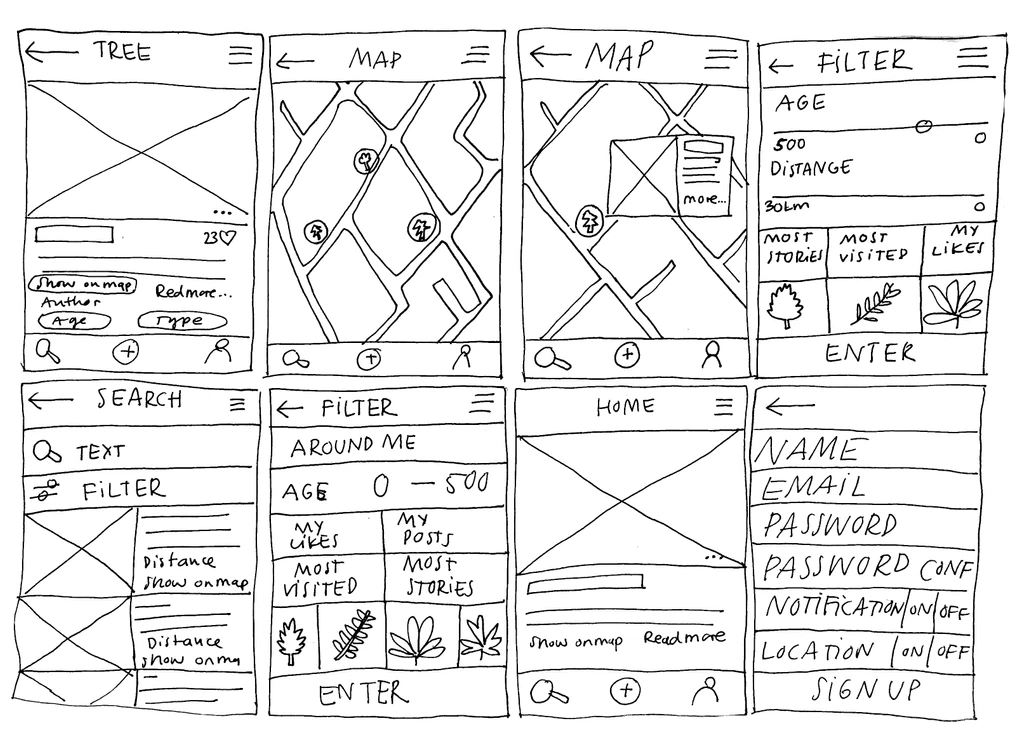 TREE
...
23
Show on map
Redmore...
Author
Age
Type
MAP
MAP
more...
FILTER
AGE
500
DISTANGE
30km
MOST STORIES
MOST VISITED
MY LIKES
ENTER
SEARCH
TEXT
FILTER
Distance
show on map
Distance
show on ma
FILTER
AROUND ME
AGE 0 — 500
MY LIKES
MY POSTS
MOST VISITED
MOST STORIES
ENTER
HOME
...
show on map
Read more
NAME
EMAIL
PASSWORD
PASSWORD CONF
NOTIFICATION ON OFF
LOCATION ON OFF
SIGN UP